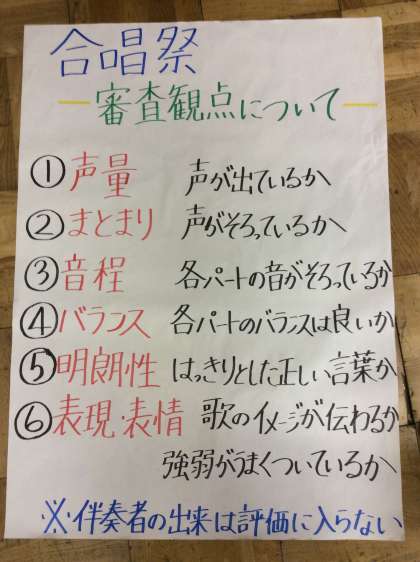 合唱祭
審査観点について
①声量 声が出ているか
②まとまり 声がそろっているか
③音程 各パートの音がそろっているか
④バランス 各パートのバランスは良いか
⑤明朗性 はっきりとした正しい言葉か
⑥表現・表情 歌のイメージが伝わるか
強弱がうまくついているか
※伴奏者の出来は評価に入らない